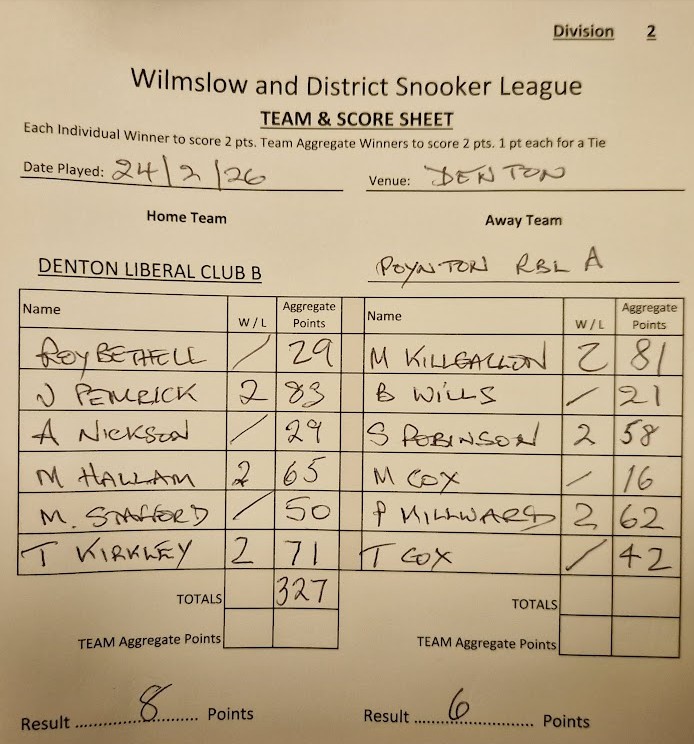 Division 2
Wilmslow and District Snooker League
TEAM & SCORE SHEET
Each Individual Winner to score 2 pts. Team Aggregate Winners to score 2 pts. 1 pt each for a Tie
Date Played: 24/2/26 Venue: DENTON
Home Team Away Team
DENTON LIBERAL CLUB B POYNTON RBL A
Name W / L Aggregate Points Name W / L Aggregate Points
ROY BETHELL / 29 M KILLGALLON 2 81
J PEMRICK 2 83 B WILLS / 21
A NICKSON / 29 S ROBINSON 2 58
M HALLAM 2 65 M COX / 16
M. STAFFORD / 50 P MILLWARD 2 62
T KIRKLEY 2 71 T COX / 42
TOTALS 327 TOTALS
TEAM Aggregate Points TEAM Aggregate Points
Result 8 Points Result 6 Points